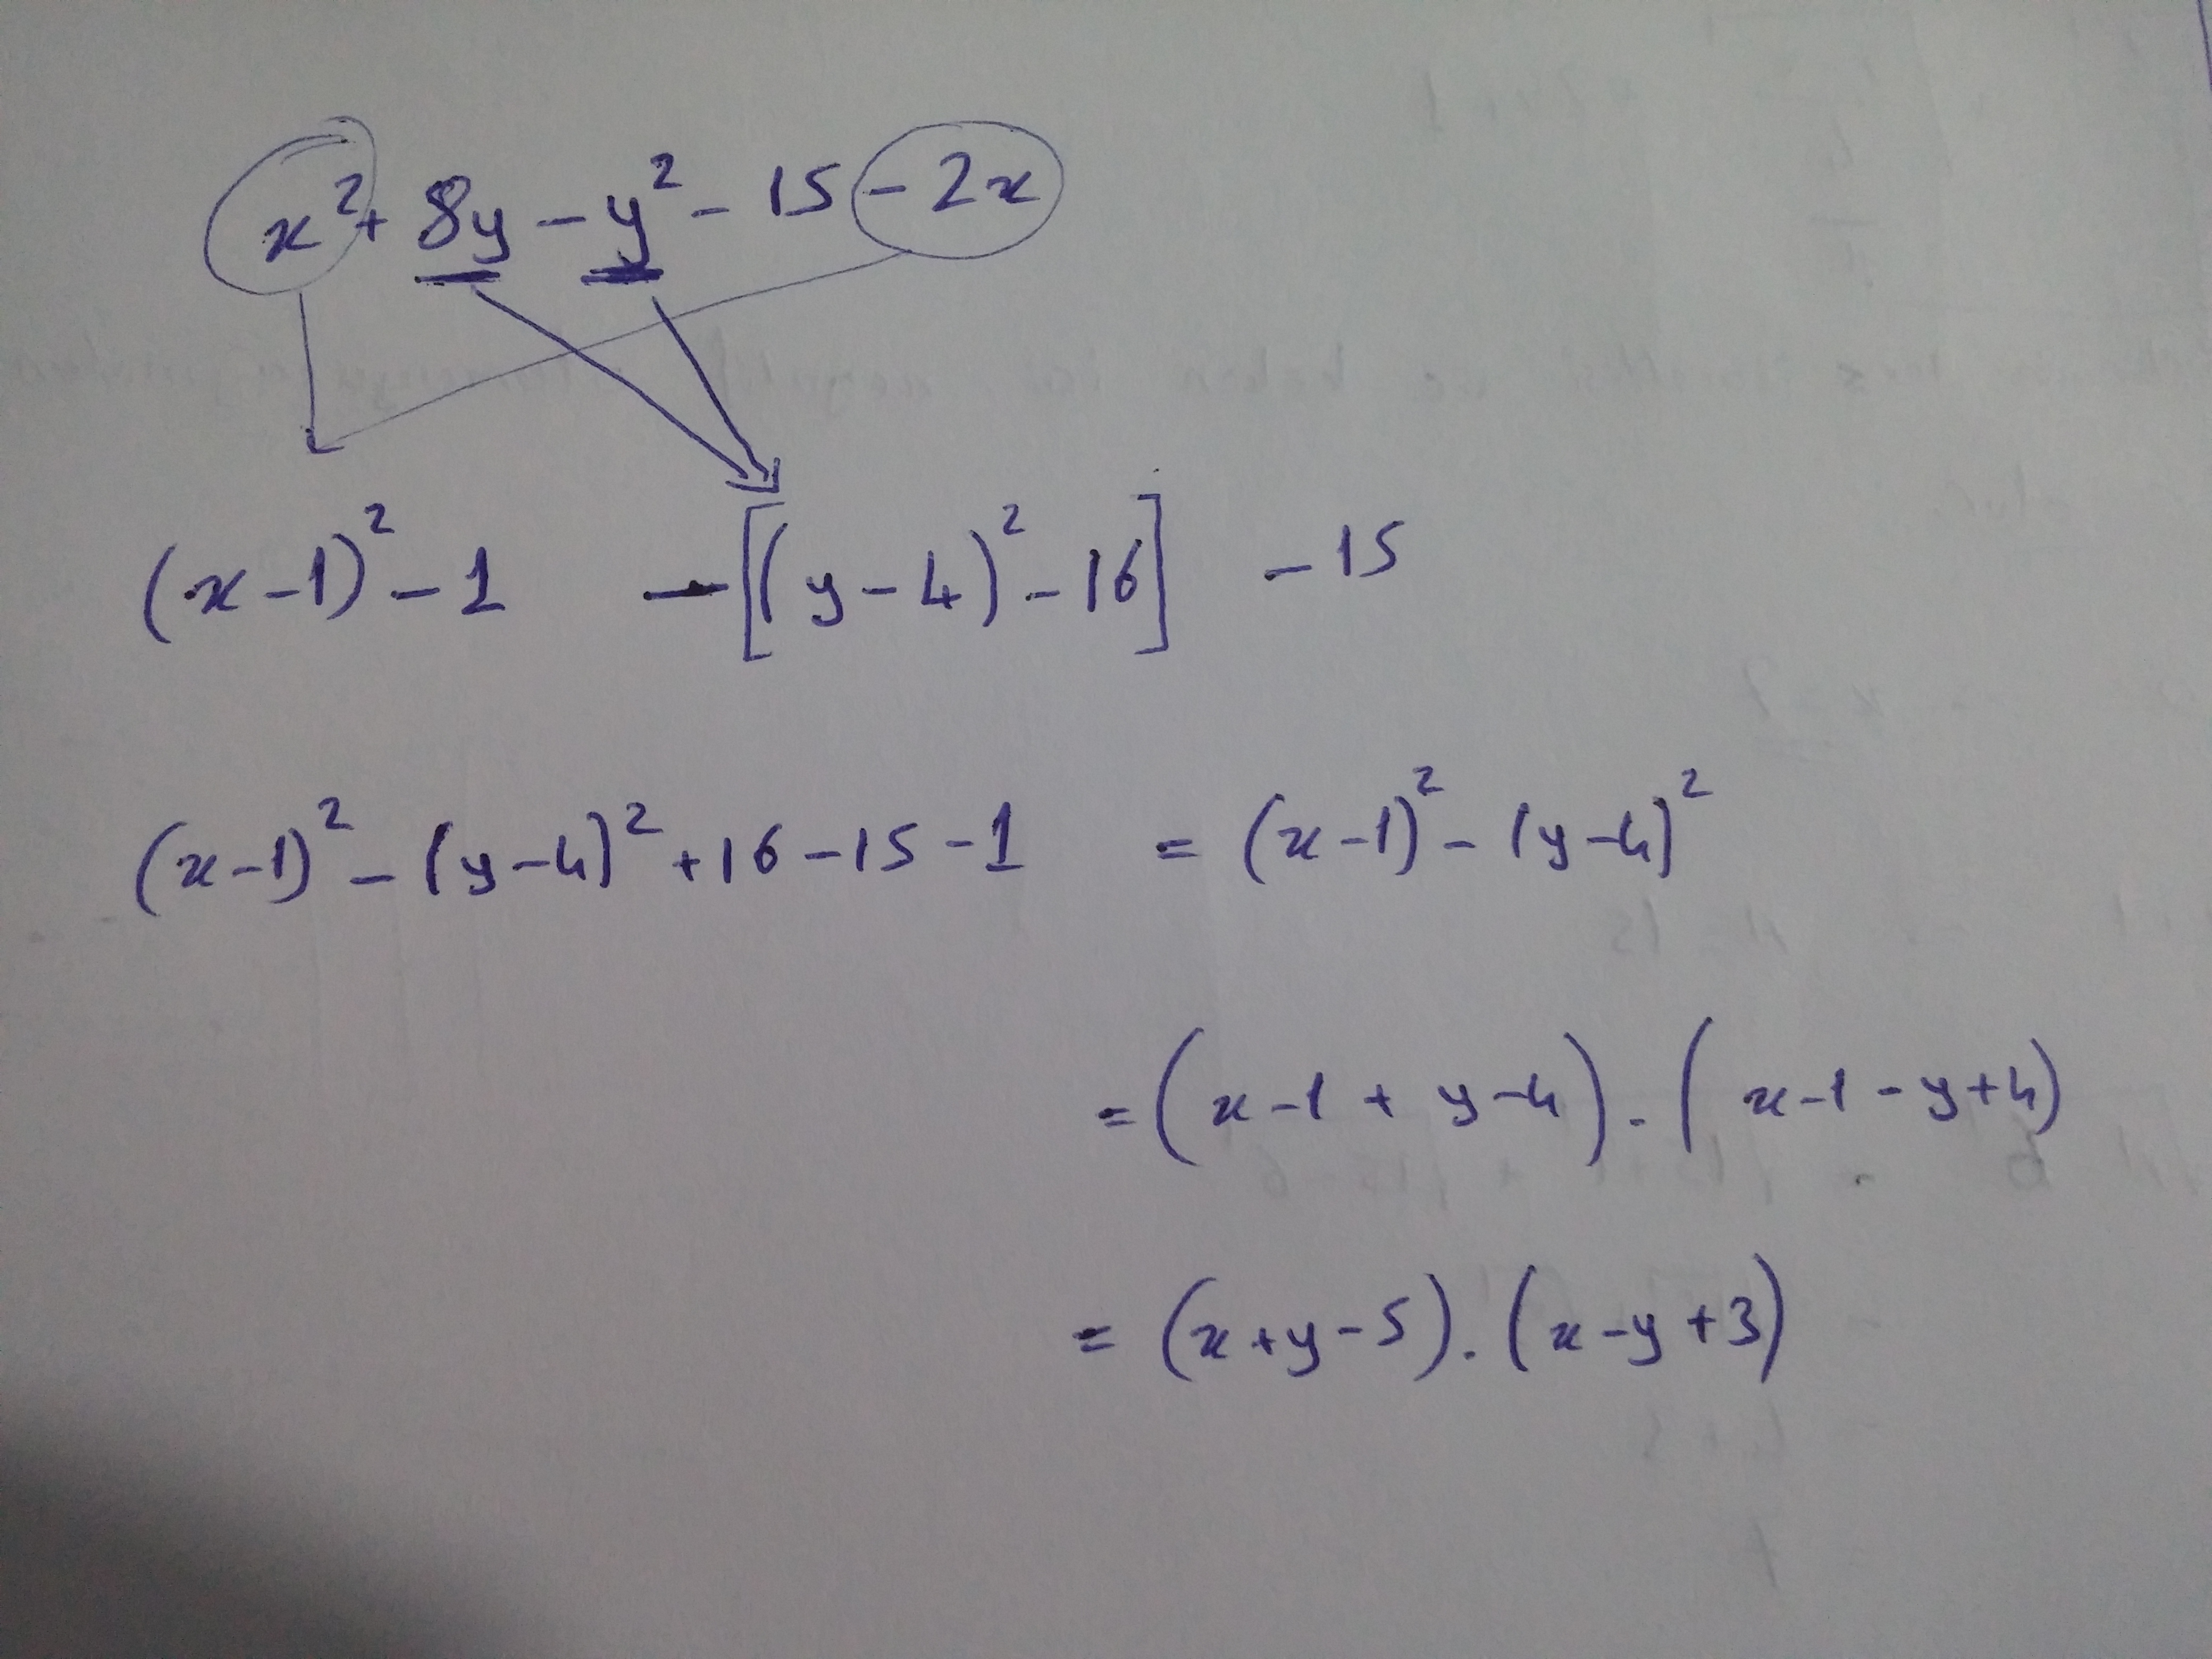 x² + 8y - y² - 15 - 2x
(x-1)² - 1 - [(y-4)² - 16] - 15
(x-1)² - (y-4)² + 16 - 15 - 1 = (x-1)² - (y-4)²
= (x-1 + y-4) . (x-1 - y+4)
= (x+y-5) . (x-y+3)